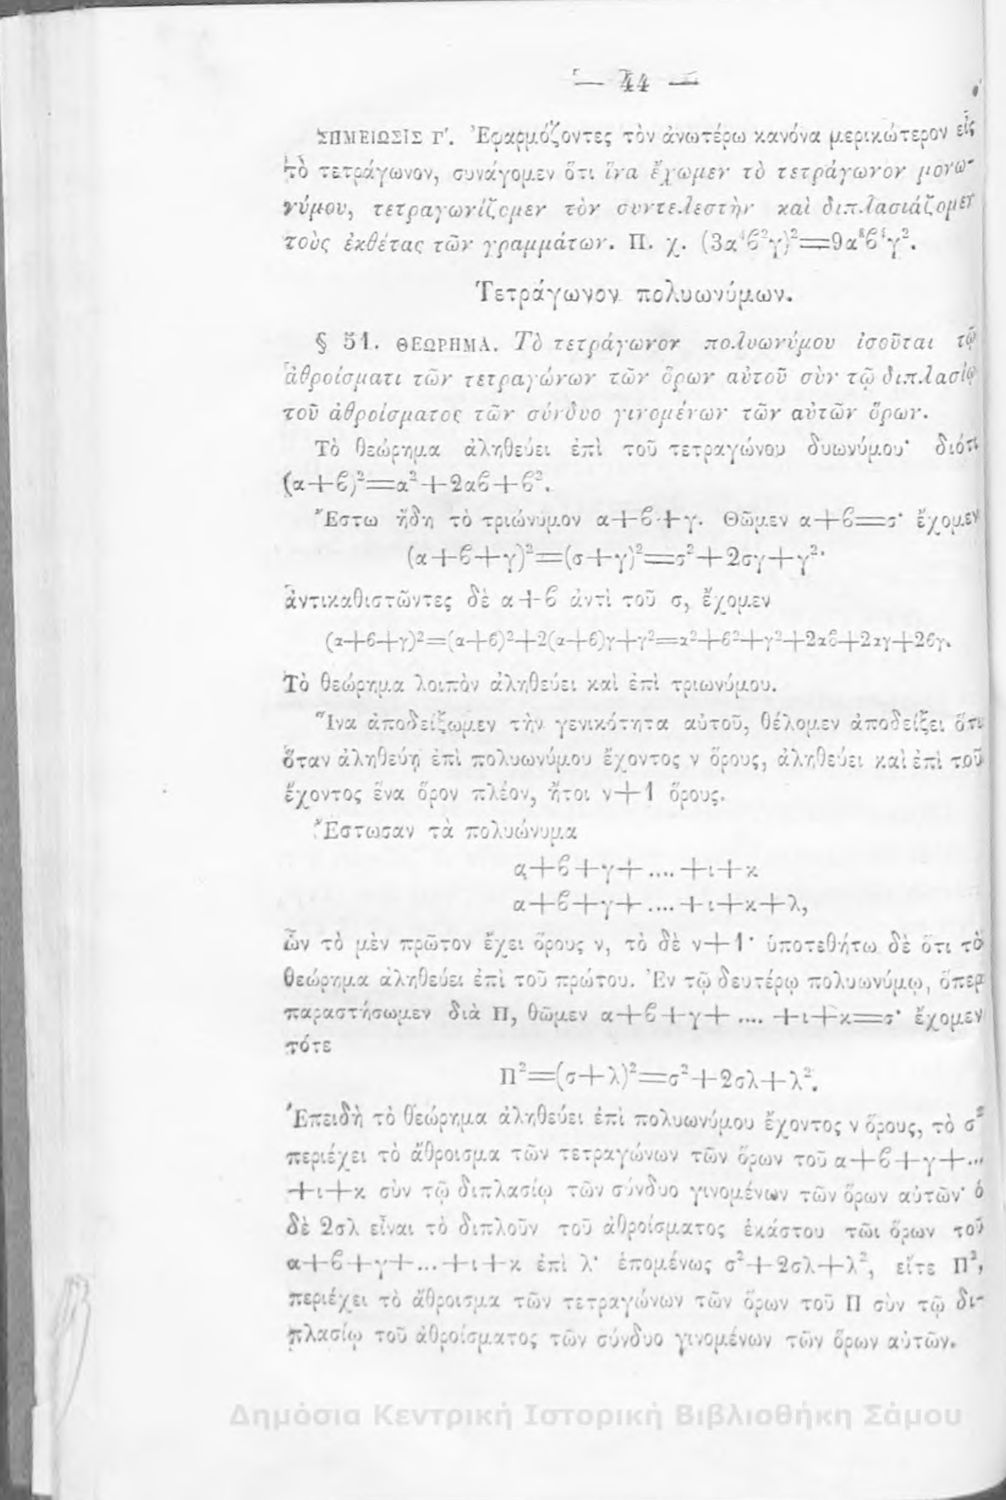 — 44 —
ΣΗΜΕΙΩΣΙΣ Γ'. Ἐφαρμόζοντες τὸν ἀνωτέρω κανόνα μερικώτερον εἰς
τὸ τετράγωνον, συνάγομεν ὅτι ἵνα ἔχωμεν τὸ τετράγωνον μονω-
νύμου, τετραγωνίζομεν τὸν συντελεστὴν καὶ διπλασιάζομεν
τοὺς ἐκθέτας τῶν γραμμάτων. Π. χ. (3α⁴ϐ²γ)²=9α⁸ϐ⁴γ².
Τετράγωνον πολυωνύμων.
§ 51. ΘΕΩΡΗΜΑ. Τὸ τετράγωνον πολυωνύμου ἰσοῦται τῷ
ἀθροίσματι τῶν τετραγώνων τῶν ὅρων αὐτοῦ σὺν τῷ διπλασίῳ
τοῦ ἀθροίσματος τῶν σύνδυο γινομένων τῶν αὐτῶν ὅρων.
Τὸ θεώρημα ἀληθεύει ἐπὶ τοῦ τετραγώνου δυωνύμου· διότι
(α+ϐ)²=α²+2αϐ+ϐ².
Ἔστω ἤδη τὸ τριώνυμον α+ϐ+γ. Θῶμεν α+ϐ=σ· ἔχομεν
(α+ϐ+γ)²=(σ+γ)²=σ²+2σγ+γ²·
ἀντικαθιστῶντες δὲ α+ϐ ἀντὶ τοῦ σ, ἔχομεν
(α+ϐ+γ)²=(α+ϐ)²+2(α+ϐ)γ+γ²=α²+ϐ²+γ²+2αϐ+2αγ+2ϐγ.
Τὸ θεώρημα λοιπὸν ἀληθεύει καὶ ἐπὶ τριωνύμου.
Ἵνα ἀποδείξωμεν τὴν γενικότητα αὐτοῦ, θέλομεν ἀποδείξει ὅτι
ὅταν ἀληθεύῃ ἐπὶ πολυωνύμου ἔχοντος ν ὅρους, ἀληθεύει καὶ ἐπὶ τοῦ
ἔχοντος ἕνα ὅρον πλέον, ἤτοι ν+1 ὅρους.
Ἔστωσαν τὰ πολυώνυμα
α+ϐ+γ+....+ι+κ
α+ϐ+γ+....+ι+κ+λ,
ὧν τὸ μὲν πρῶτον ἔχει ὅρους ν, τὸ δὲ ν+1· ὑποτεθήτω δὲ ὅτι τὸ
θεώρημα ἀληθεύει ἐπὶ τοῦ πρώτου. Ἐν τῷ δευτέρῳ πολυωνύμῳ, ὅπερ
παραστήσωμεν διὰ Π, θῶμεν α+ϐ+γ+....+ι+κ=σ· ἔχομεν
τότε
Π²=(σ+λ)²=σ²+2σλ+λ².
Ἐπειδὴ τὸ θεώρημα ἀληθεύει ἐπὶ πολυωνύμου ἔχοντος ν ὅρους, τὸ σ²
περιέχει τὸ ἄθροισμα τῶν τετραγώνων τῶν ὅρων τοῦ α+ϐ+γ+...
+ι+κ σὺν τῷ διπλασίῳ τῶν σύνδυο γινομένων τῶν ὅρων αὐτῶν· ὁ
δὲ 2σλ εἶναι τὸ διπλοῦν τοῦ ἀθροίσματος ἑκάστου τῶι ὅρων τοῦ
α+ϐ+γ+...+ι+κ ἐπὶ λ· ἑπομένως σ²+2σλ+λ², εἴτε Π²,
περιέχει τὸ ἄθροισμα τῶν τετραγώνων τῶν ὅρων τοῦ Π σὺν τῷ δι-
πλασίῳ τοῦ ἀθροίσματος τῶν σύνδυο γινομένων τῶν ὅρων αὐτῶν.
Δημόσια Κεντρική Ιστορική Βιβλιοθήκη Σάμου